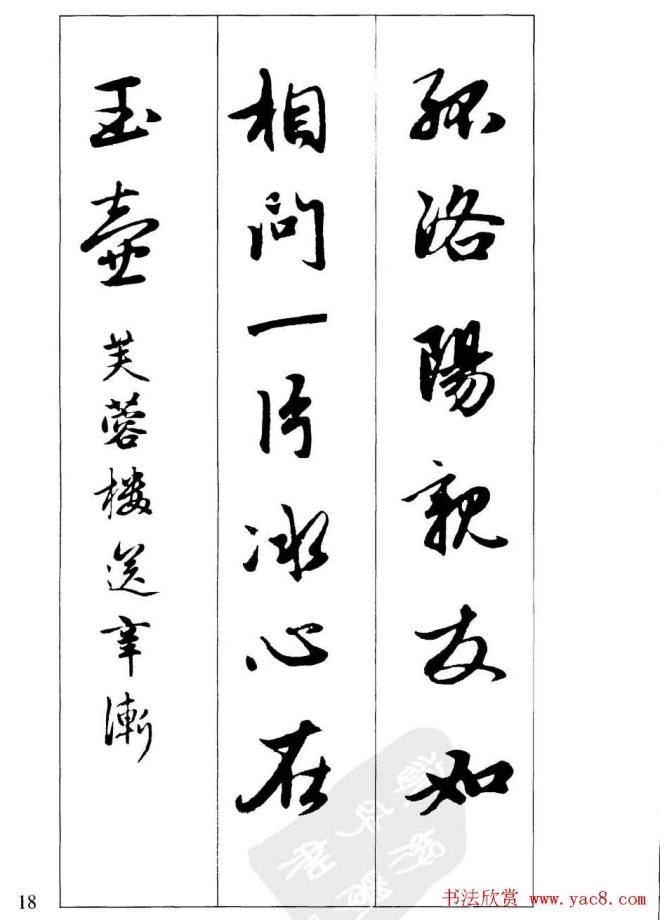 孤洛陽親友如
相问一片冰心在
玉壺 芙蓉楼送辛漸
18
书法欣赏 www.yac8.com